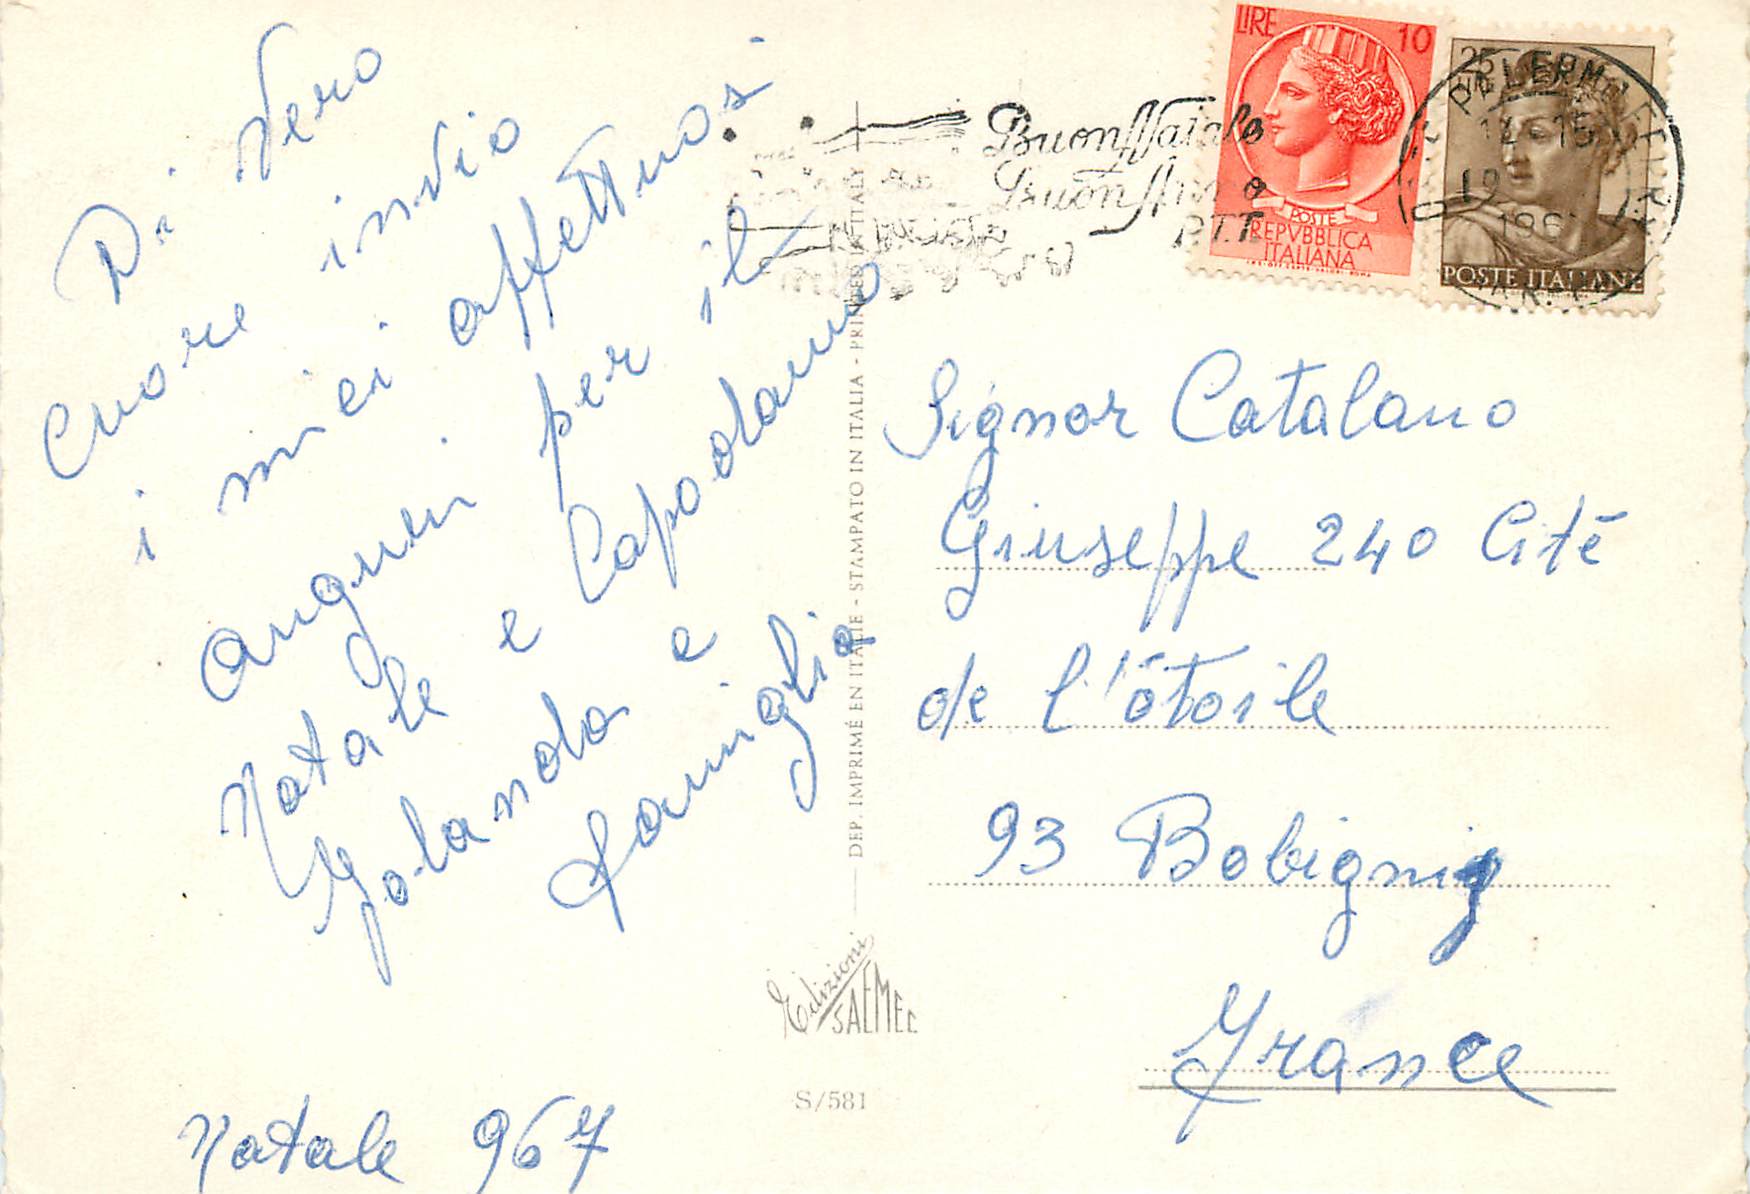 Di Vero
Cuore invio
i miei affettuosi
auguri per il
Natale e Capodanno
Yolanda e
famiglia
Natale 967
DEP. IMPRIMÉ EN ITALIE - STAMPATO IN ITALIA - PRINTED IN ITALY
Edizioni
SAEMEC
S/581
Buon Natale
Buon Anno
P.T.T.
LIRE 10
POSTE
REPVBBLICA
ITALIANA
25
LIRE
POSTE ITALIANE
PALERMO FERROVIA
Signor Catalano
Giuseppe 240 Cité
de l'étoile
93 Bobigny
France